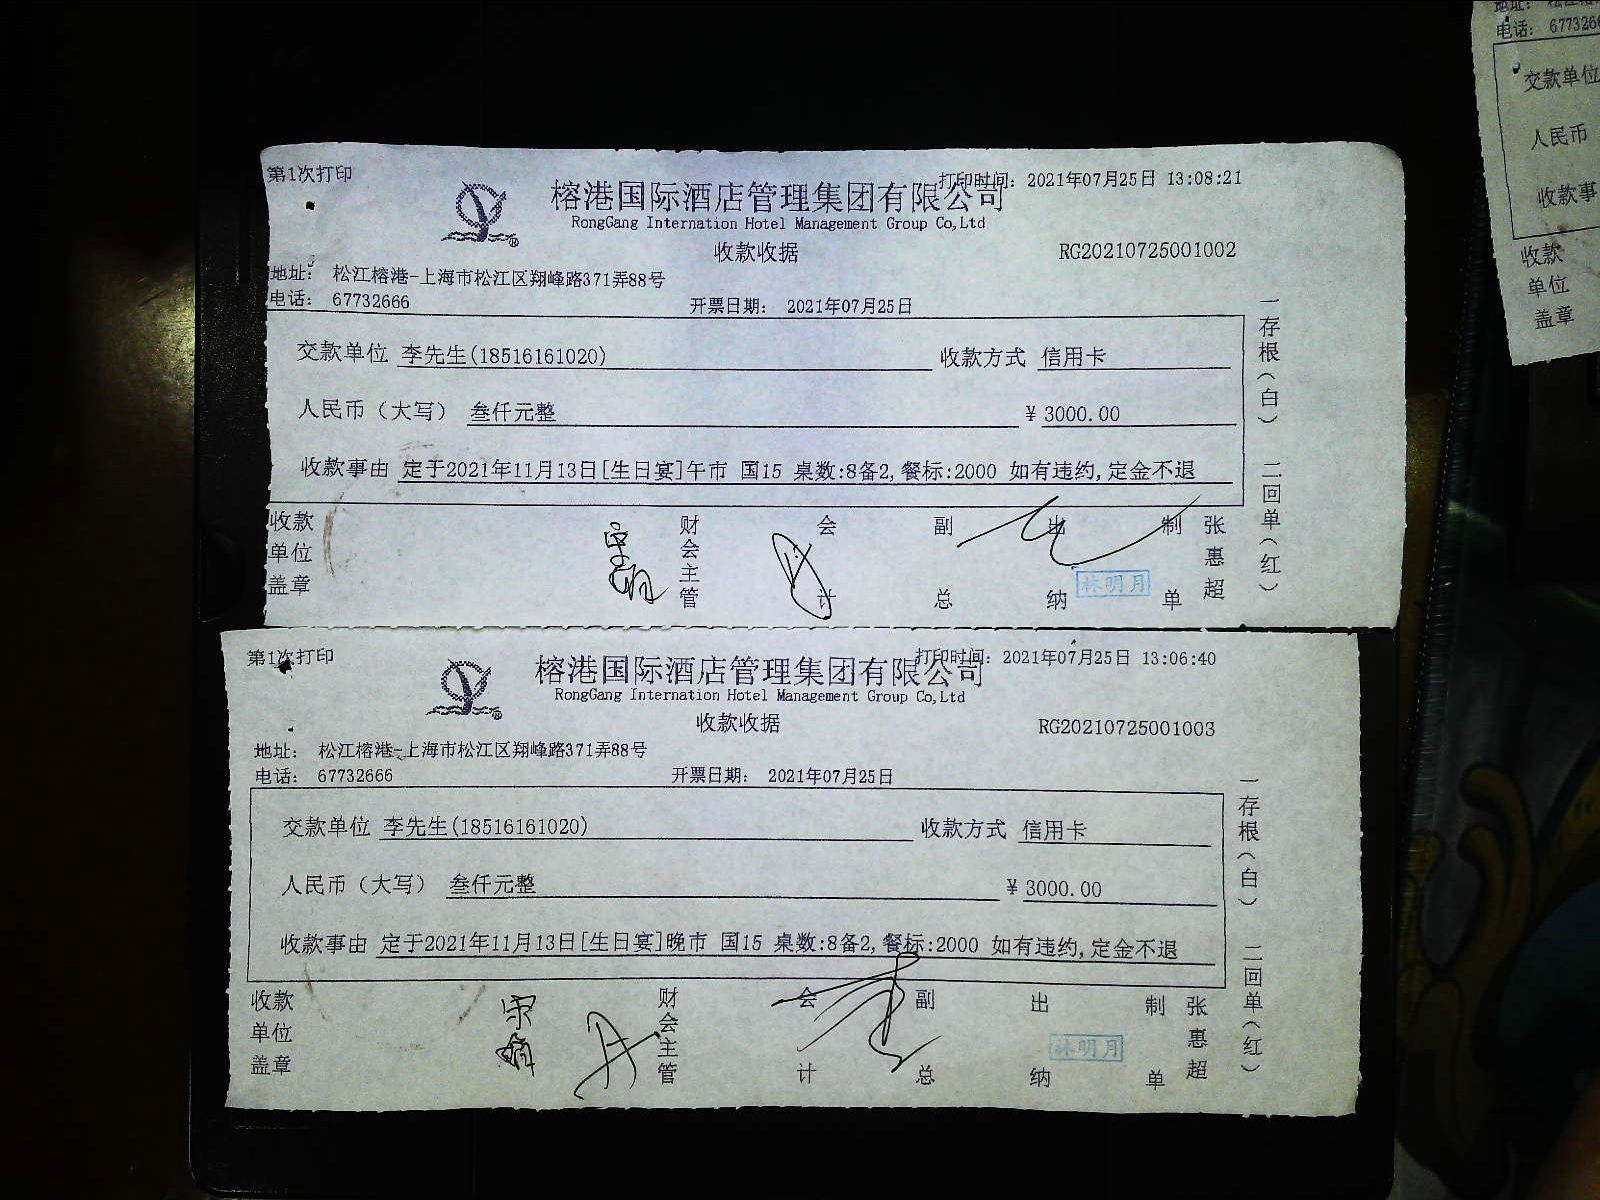 第1次打印
打印时间: 2021年07月25日 13:08:21
榕港国际酒店管理集团有限公司
RongGang Internation Hotel Management Group Co,Ltd
收款收据
RG20210725001002
地址: 松江榕港-上海市松江区翔峰路371弄88号
电话: 67732666
开票日期: 2021年07月25日
交款单位 李先生(18516161020)
收款方式 信用卡
人民币（大写） 叁仟元整
¥ 3000.00
收款事由 定于2021年11月13日[生日宴]午市 国15 桌数:8备2,餐标:2000 如有违约,定金不退
一存根（白） 二回单（红）
收款单位盖章
财会主管
会计
副总
出纳
林明月
制单
张惠超
第1次打印
打印时间: 2021年07月25日 13:06:40
榕港国际酒店管理集团有限公司
RongGang Internation Hotel Management Group Co,Ltd
收款收据
RG20210725001003
地址: 松江榕港-上海市松江区翔峰路371弄88号
电话: 67732666
开票日期: 2021年07月25日
交款单位 李先生(18516161020)
收款方式 信用卡
人民币（大写） 叁仟元整
¥ 3000.00
收款事由 定于2021年11月13日[生日宴]晚市 国15 桌数:8备2,餐标:2000 如有违约,定金不退
一存根（白） 二回单（红）
收款单位盖章
财会主管
会计
副总
出纳
林明月
制单
张惠超
地址: 松江
电话: 677326
交款单位
人民币
收款事
收款
单位
盖章